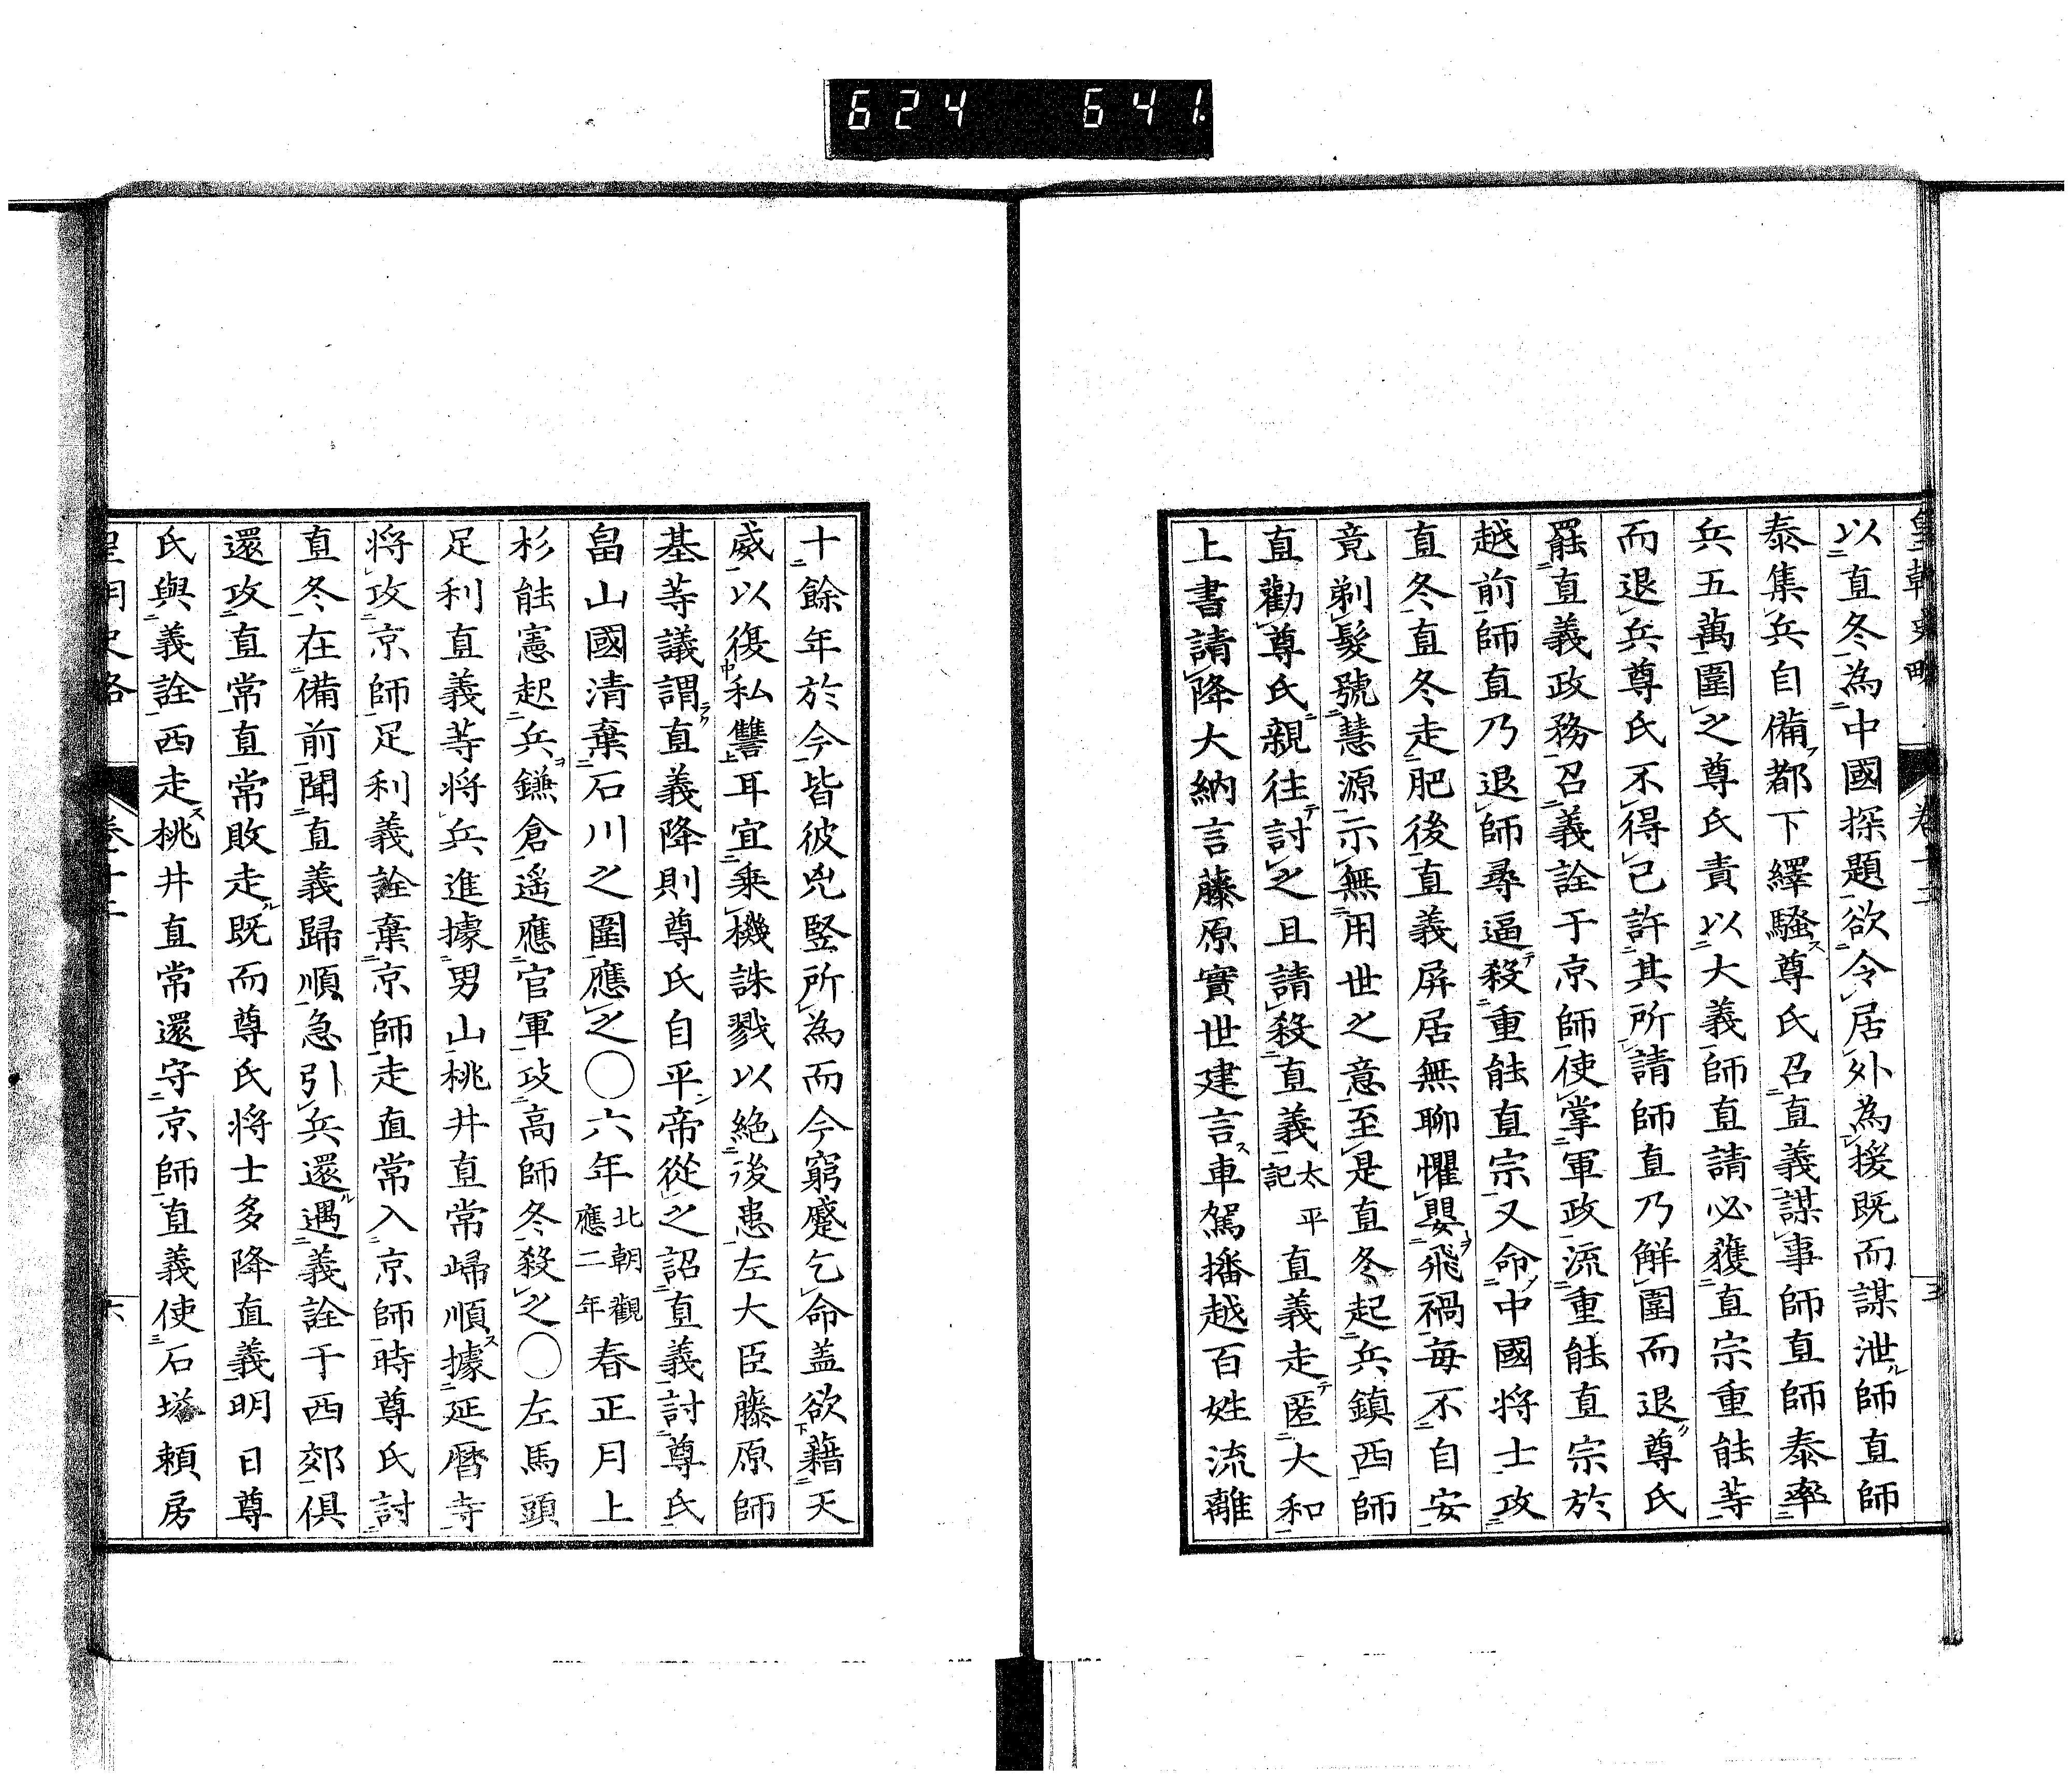 624 641.
以直冬為中國探題欲令居外為援既而謀泄師直師
泰集兵自備都下繹騷尊氏召直義謀事師直師泰率
兵五萬圍之尊氏責以大義師直請必獲直宗重能等
而退兵尊氏不得已許其所請師直乃解圍而退尊氏
罷直義政務召義詮于京師使掌軍政流重能直宗於
越前師直乃退師尋逼殺重能直宗又命中國将士攻
直冬直冬走肥後直義屏居無聊懼嬰飛禍毎不自安
竟剃髮號慧源示無用世之意至是直冬起兵鎮西師
直勸尊氏親往討之且請殺直義太平記直義走匿大和
上書請降大納言藤原實世建言車駕播越百姓流離
十餘年於今皆彼兇竪所為而今窮蹙乞命盖欲藉天
威以復私讐耳宜乘機誅戮以絶後患左大臣藤原師
基等議謂直義降則尊氏自平帝從之詔直義討尊氏
畠山國清棄石川之圍應之〇六年北朝觀應二年春正月上
杉能憲起兵鎌倉遥應官軍攻高師冬殺之〇左馬頭
足利直義等将兵進據男山桃井直常歸順據延暦寺
将攻京師足利義詮棄京師走直常入京師時尊氏討
直冬在備前聞直義歸順急引兵還遇義詮于西郊俱
還攻直常直常敗走既而尊氏将士多降直義明日尊
氏與義詮西走桃井直常還守京師直義使石塔頼房